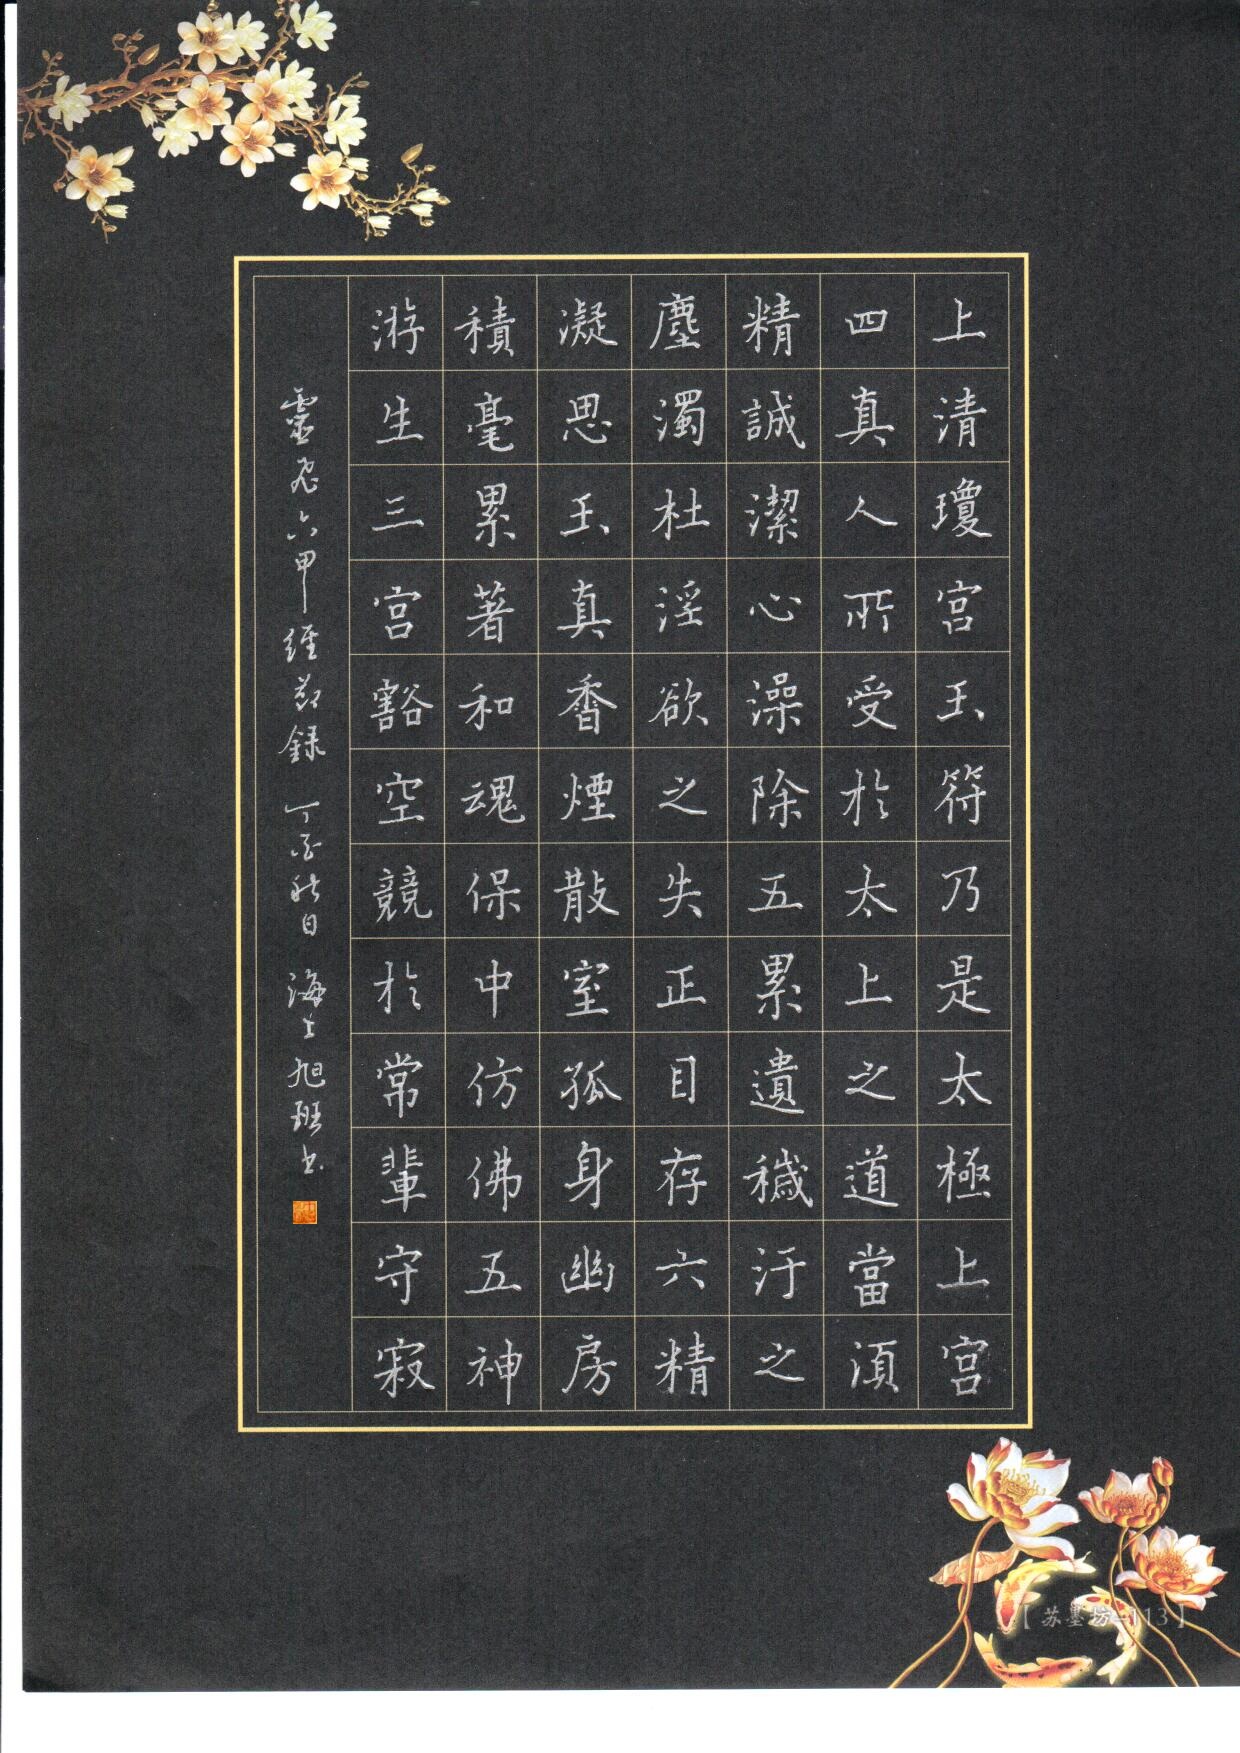 上清瓊宮玉符乃是太極上宮
四真人所受於太上之道當須
精誠潔心澡除五累遺穢汙之
塵濁杜淫欲之失正目存六精
凝思玉真香煙散室孤身幽房
積毫累著和魂保中仿佛五神
游生三宮豁空競於常輩守寂
靈飛六甲經節錄 丁酉秋日 海上旭班书
【苏墨坊-113】